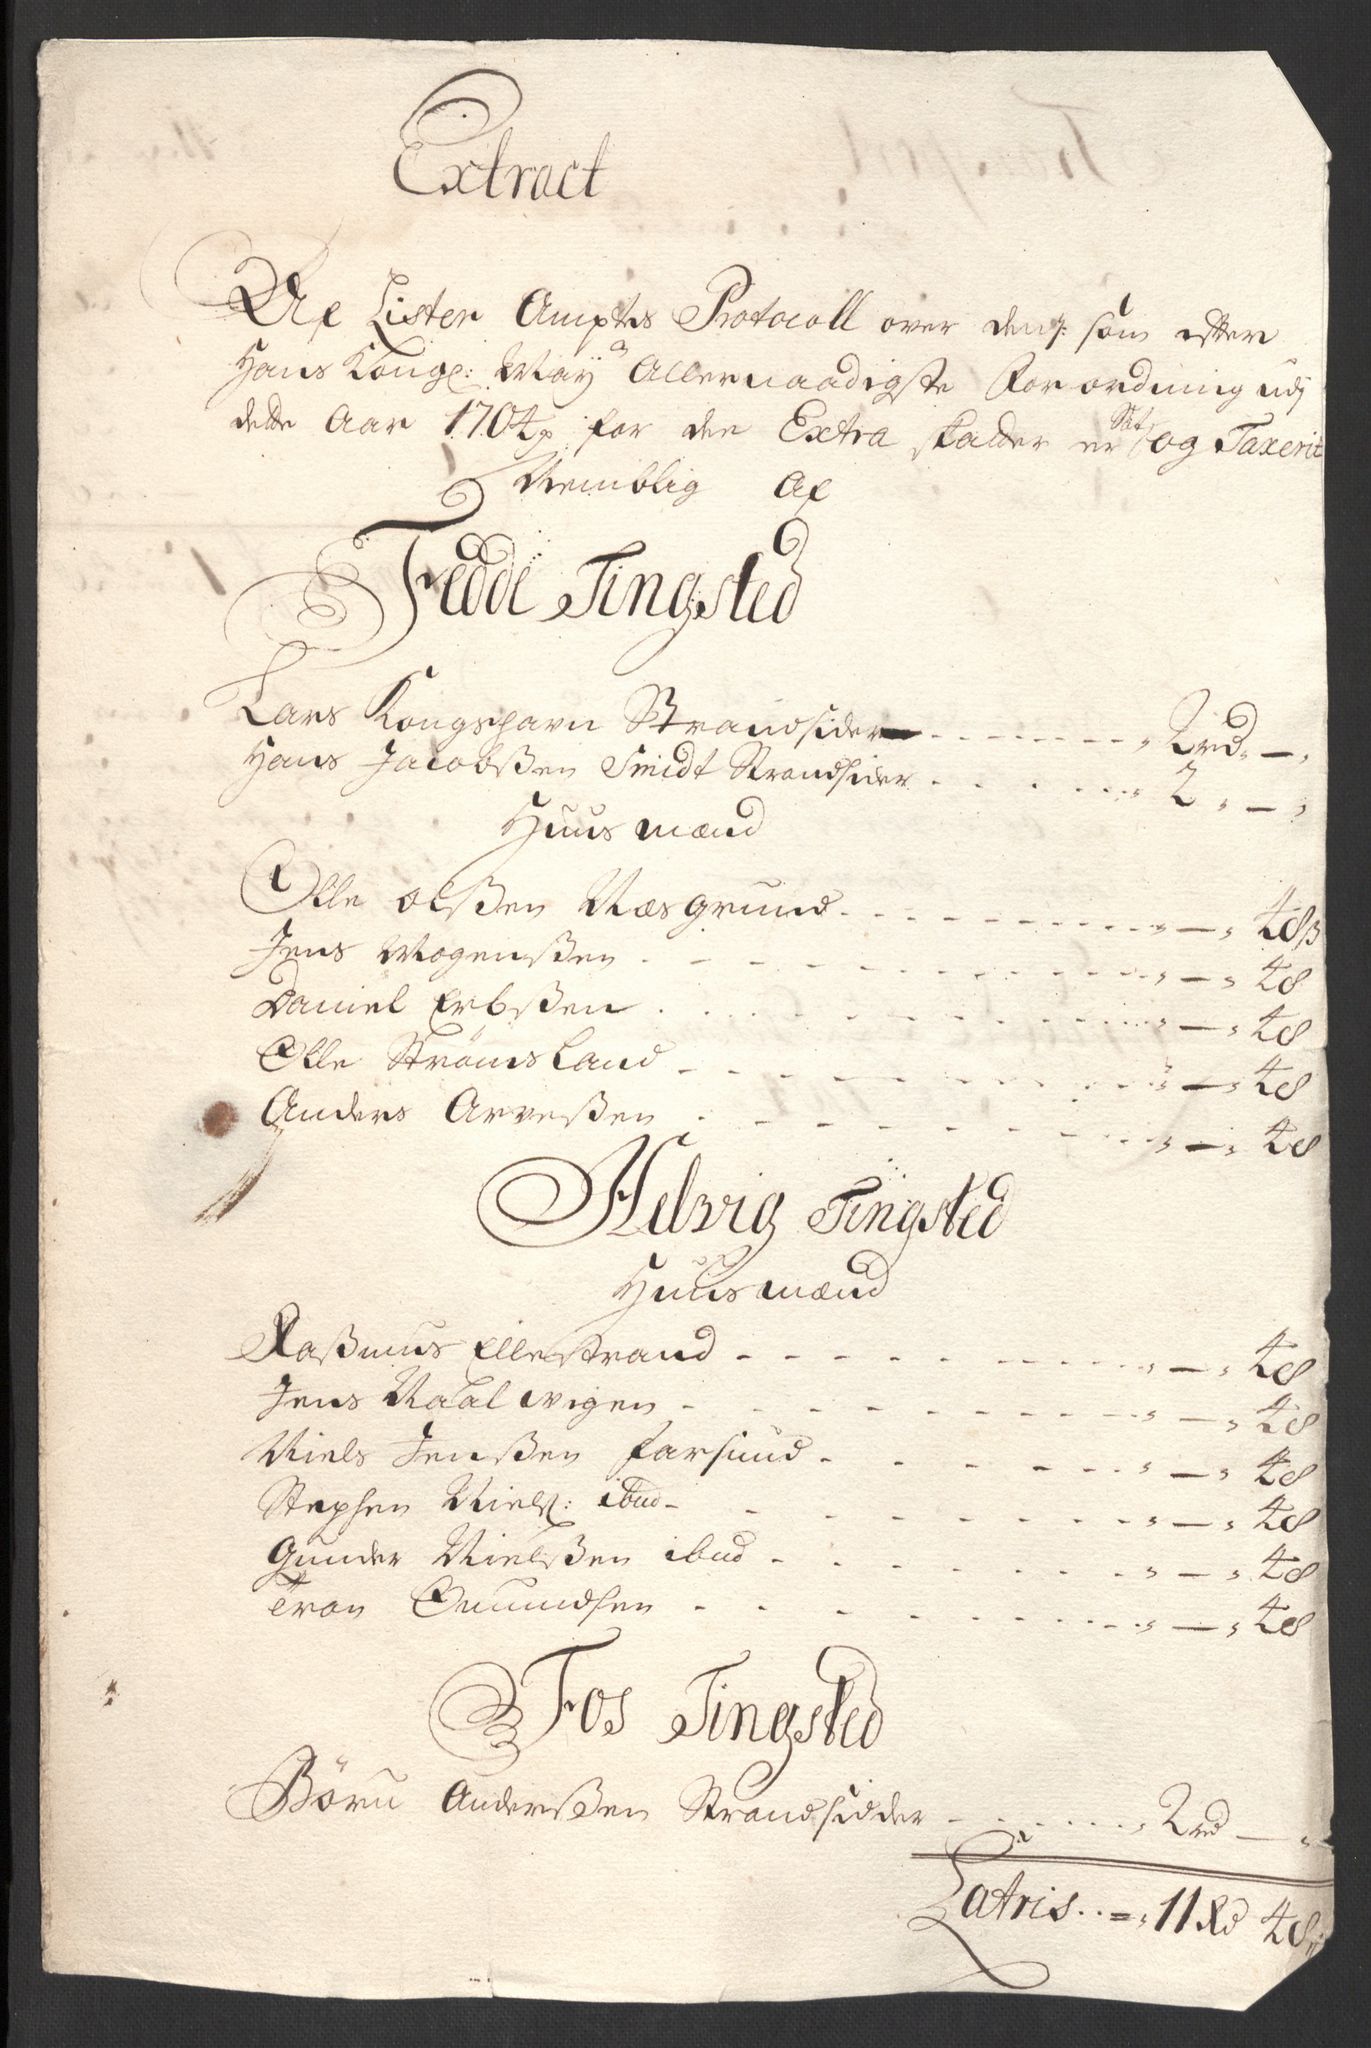 Extract
Af Lister Ampts Protocoll over den: som efter
Hans Kongl: May: Allernaadigste Forordning udj
dette Aar 1704, for den Extra skatter er Sat, og Taxerit
Nemblig Af
Fedde Tingsted
Lars Kongshavn Strandsider - - - - - - - „ 2rd. — „
Hans Jacobßen Smidt Strandsider . . . . . . „ 2 „ — „
Huusmænd
Olle Olßen Næsgrund - - - - - - - - - „ — „ 48ß
Jens Mogenßen . - - - - - - - - - „ — „ 48
Daniel Erbßen . . . - - - - - - „ — „ 48
Olle Strømsland - - - - - - - - „ — „ 48
Anders Arveßen . - - - - - - - „ — „ 48
Helvig Tingsted
Huusmænd
Raßmus Ellestrand - - - - - - - - - „ — „ 48
Jens Naalwigen - - - - - - - - - „ — „ 48
Niels Jenßen Farsund - - - - - - - „ — „ 48
Stephen Nielß: ibid - - - - - - - - „ — „ 48
Gunder Nielßen ibid - - - - - - - „ — „ 48
Tron Omundsen - - - - - - - - - „ — „ 48
Fos Tingsted
Börn Anderßen Strandsidder - - - - - . „ 2rd — „
Latris . . = „ 11 Rd 48 „